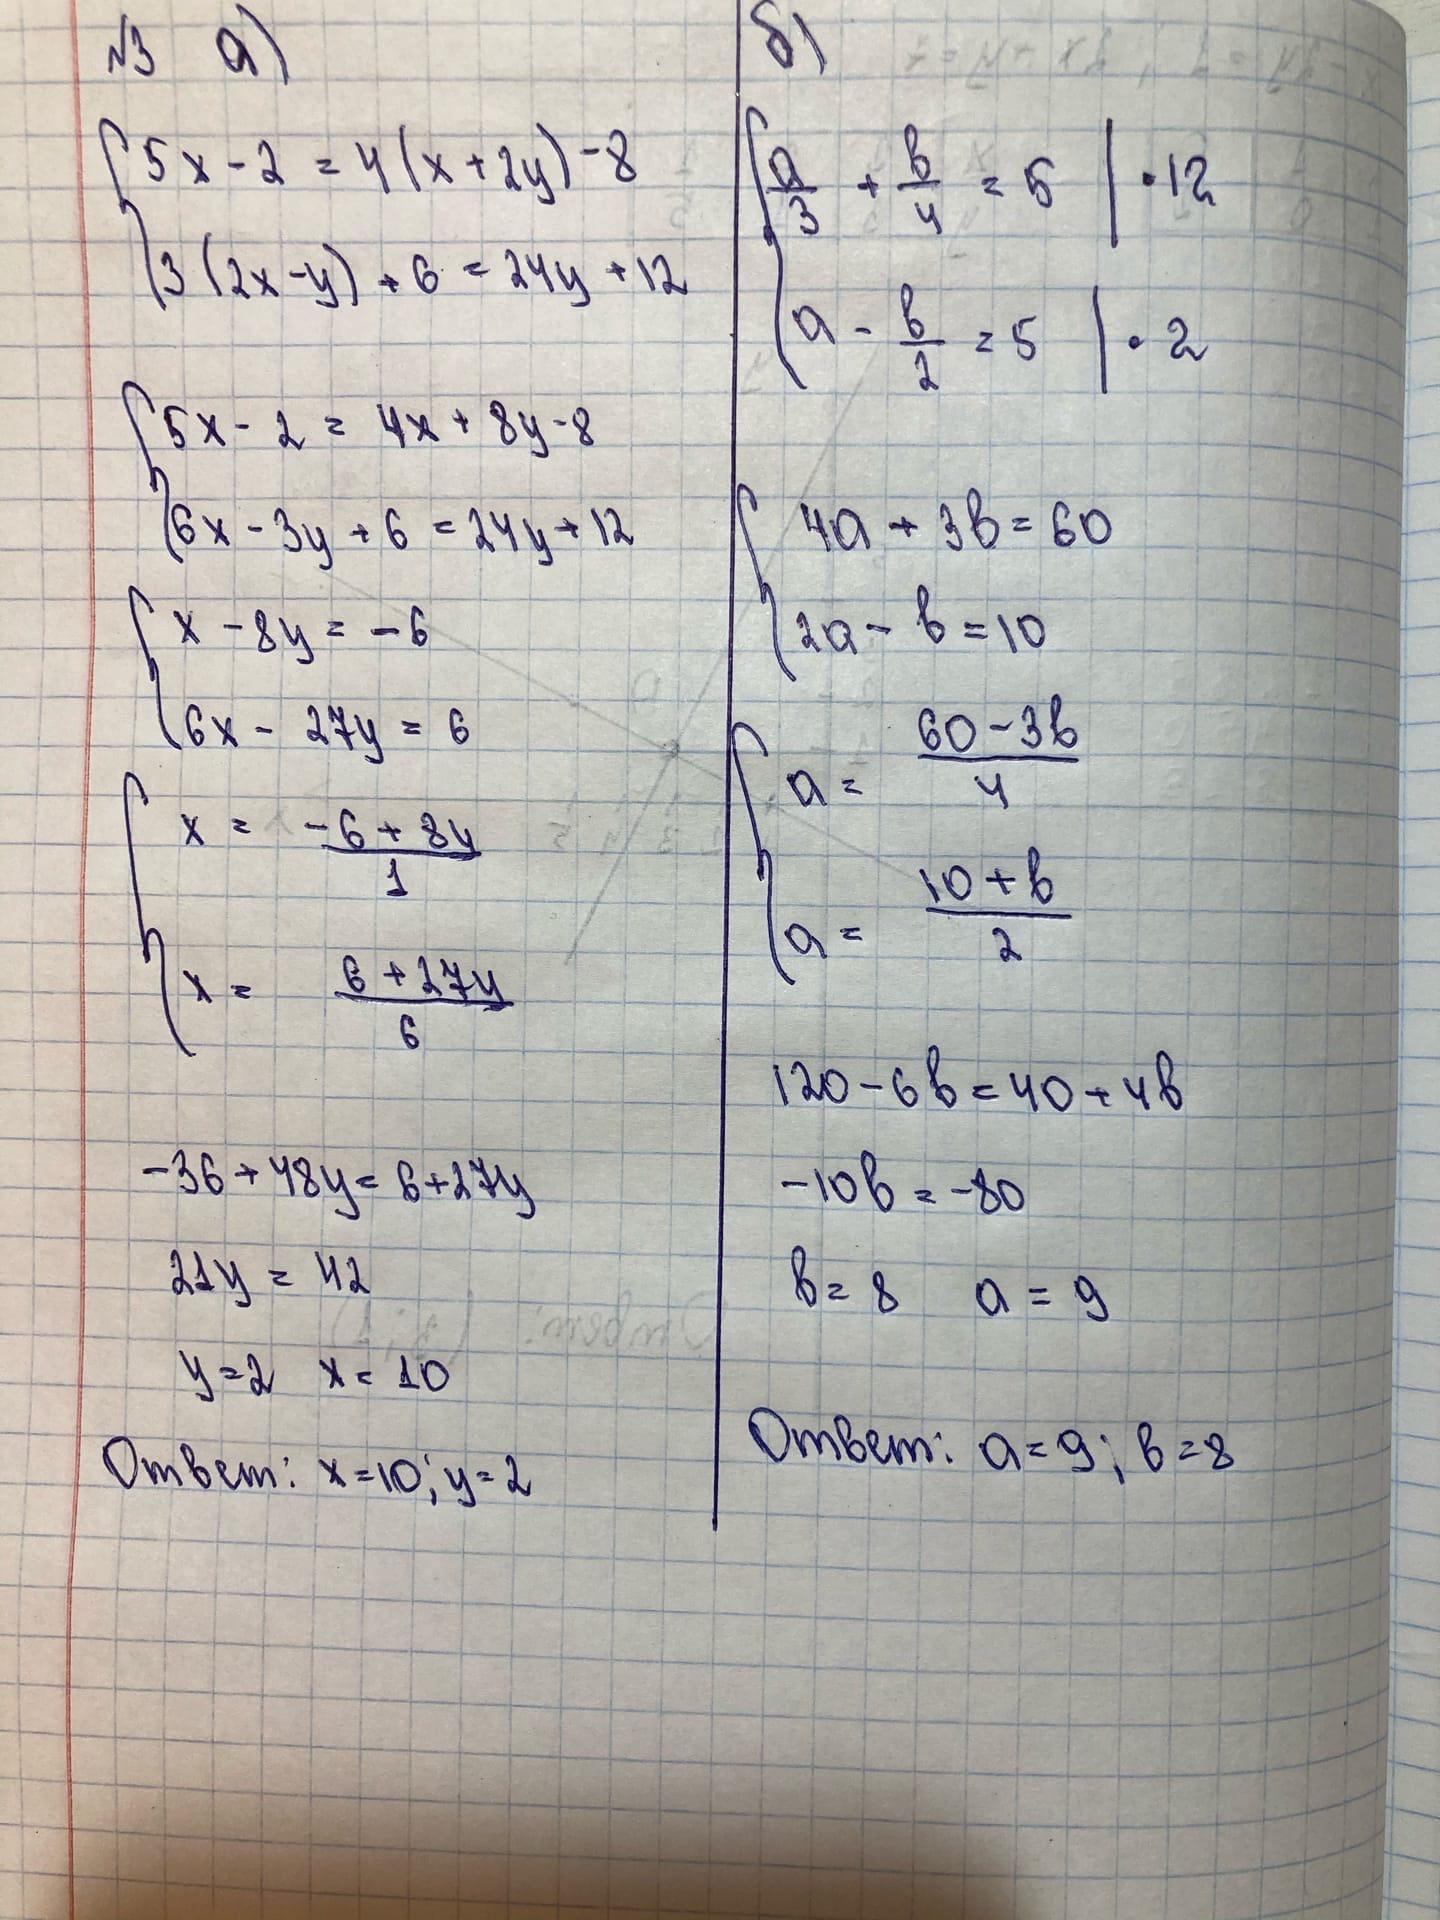 №3 а)
5x - 2 = 4(x + 2y) - 8
3(2x - y) + 6 = 24y + 12
5x - 2 = 4x + 8y - 8
6x - 3y + 6 = 24y + 12
x - 8y = -6
6x - 27y = 6
x = \frac{-6 + 8y}{1}
x = \frac{6 + 27y}{6}
-36 + 48y = 6 + 27y
21y = 42
y = 2 x = 10
Ответ: x = 10; y = 2
б)
\frac{a}{3} + \frac{b}{4} = 5 | · 12
a - \frac{b}{2} = 5 | · 2
4a + 3b = 60
2a - b = 10
a = \frac{60 - 3b}{4}
a = \frac{10 + b}{2}
120 - 6b = 40 + 4b
-10b = -80
b = 8 a = 9
Ответ: a = 9; b = 8